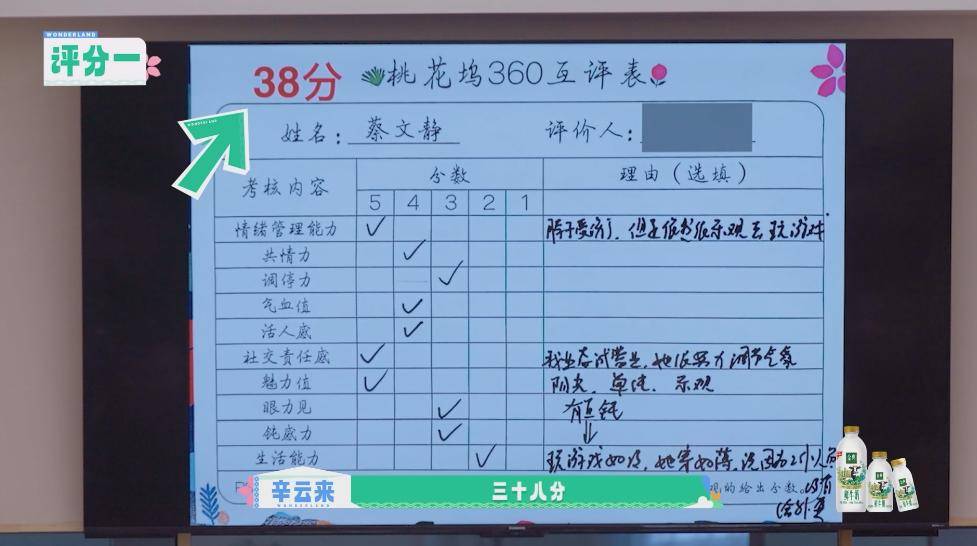 WONDERLAND
评分一
38分
桃花坞360互评表
姓名：蔡文静 评价人：
考核内容 分数 理由（选填）
5 4 3 2 1
情绪管理能力 ✓ 脖子受伤了，但是依然很乐观去玩游戏
共情力 ✓
调停力 ✓
气血值 ✓
活人感 ✓
社交责任感 ✓ 我业应试营业，她很努力调节气氛
魅力值 ✓ 阳光、单纯、乐观
眼力见 ✓ 有点钝
钝感力 ✓
生活能力 ✓ 玩游戏如没，她穿如薄，
现的给出分数。
辛云来
WONDERLAND
三十八分